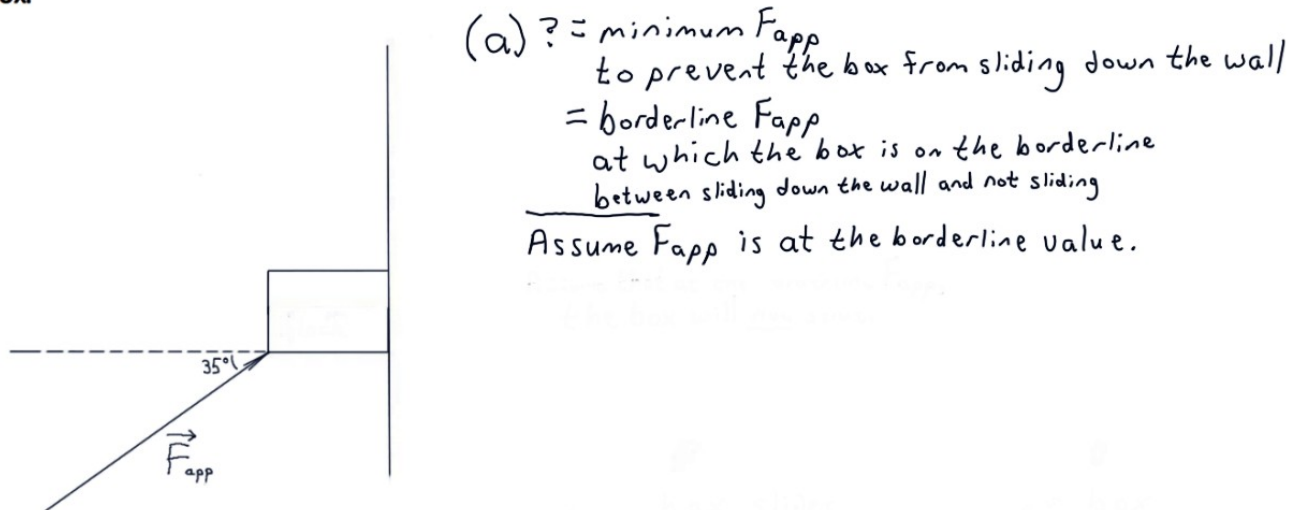 (a) ? = minimum Fapp
to prevent the box from sliding down the wall
= borderline Fapp
at which the box is on the borderline
between sliding down the wall and not sliding
Assume Fapp is at the borderline value.
35°
Fapp